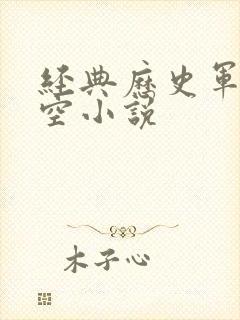 經典歷史軍
空小說
木子心